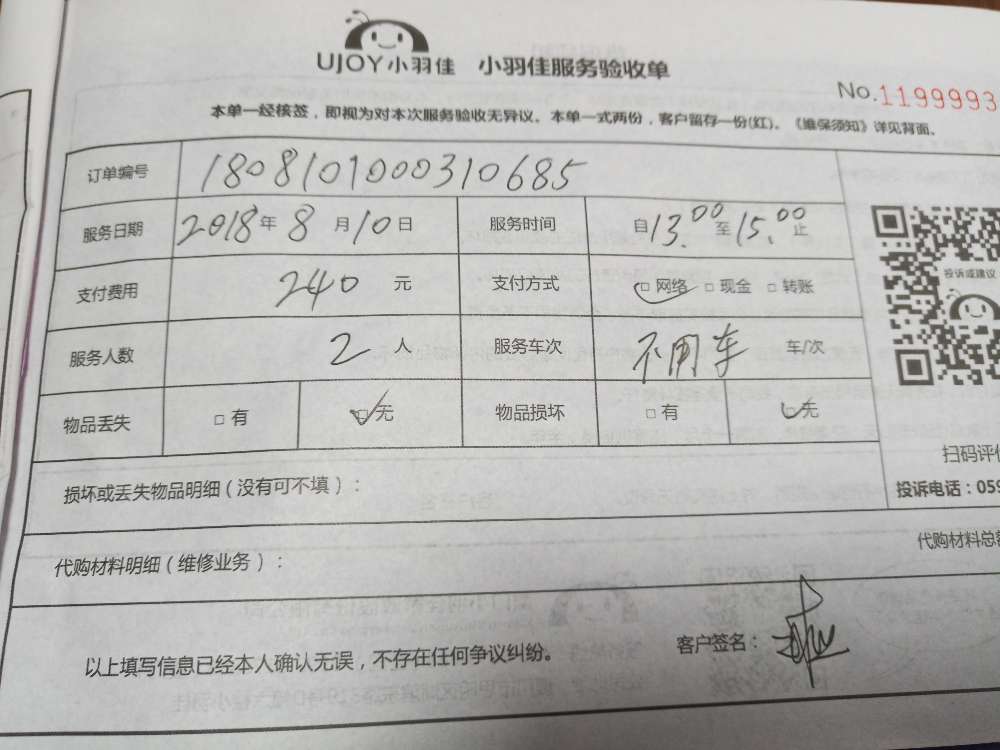 UJOY小羽佳 小羽佳服务验收单
No.1199993
本单一经核签，即视为对本次服务验收无异议。本单一式两份，客户留存一份(红)。《维保须知》详见背面。
订单编号 1808101000310685
服务日期 2018年 8月10日 服务时间 自13.00至15.00止
投诉或建议
支付费用 240 元 支付方式 □网络 □现金 □转账
服务人数 2人 服务车次 不用车 车/次
物品丢失 □有 □无 物品损坏 □有 □无
扫码评
损坏或丢失物品明细(没有可不填)：
投诉电话：059
代购材料明细(维修业务)：
代购材料总
以上填写信息已经本人确认无误，不存在任何争议纠纷。
客户签名：